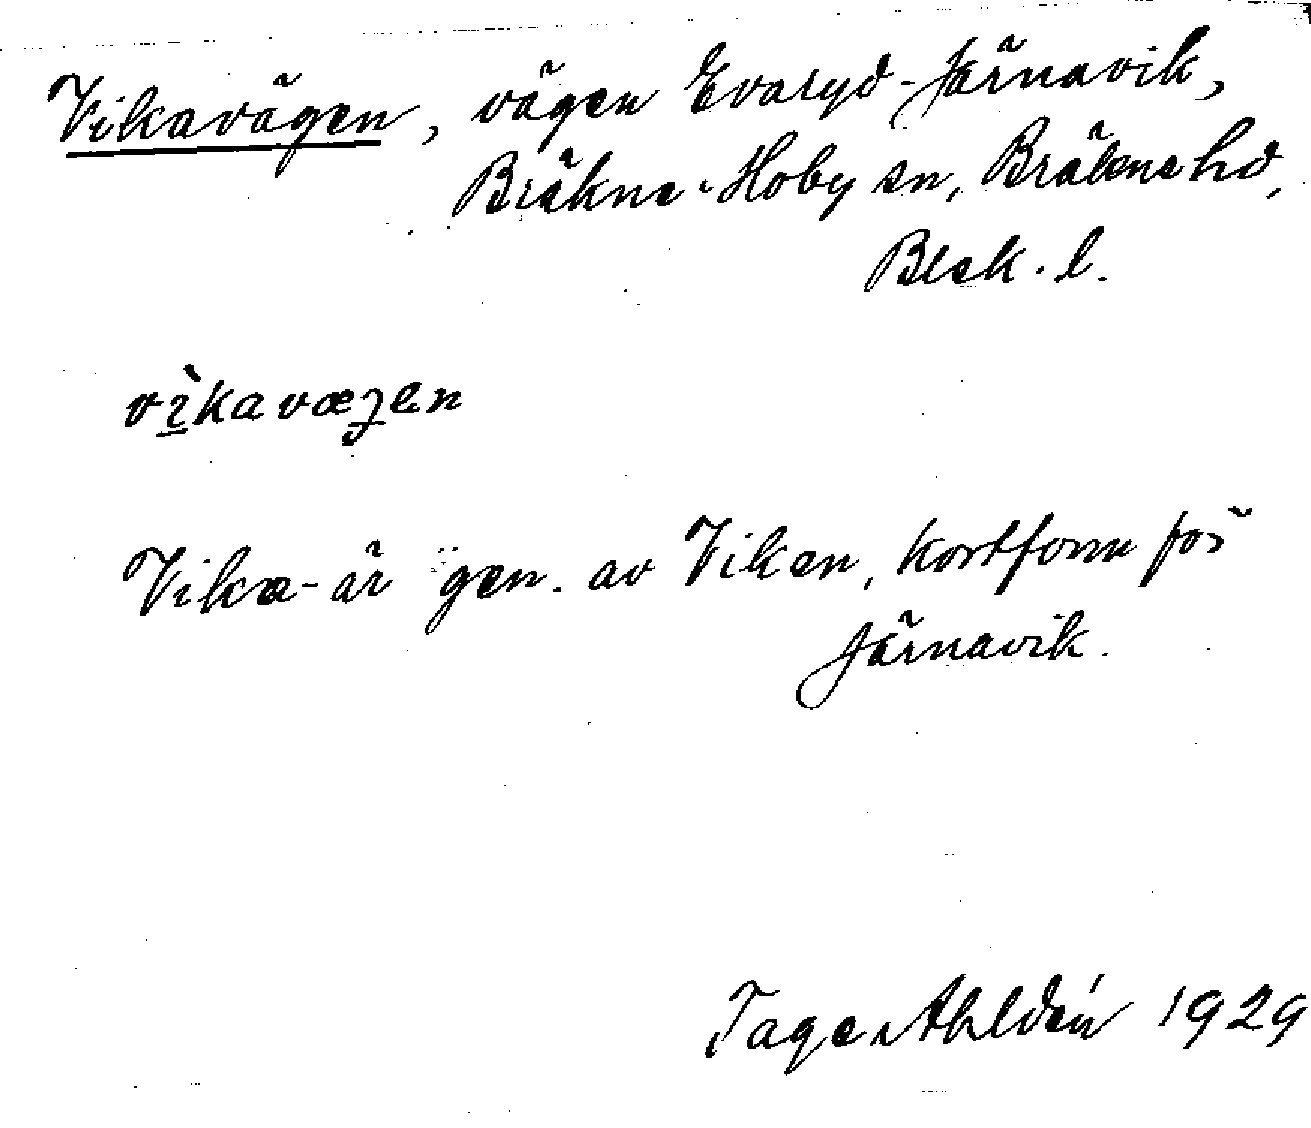 Vikavägen, vägen Evaryd-Järnavik,
Bräkne-Hoby sn, Bräkne hd,
Blek. l.
vìkavæʒen
Vika- är gen. av Viken, kortform för
Järnavik.
Tage Ahldén 1929